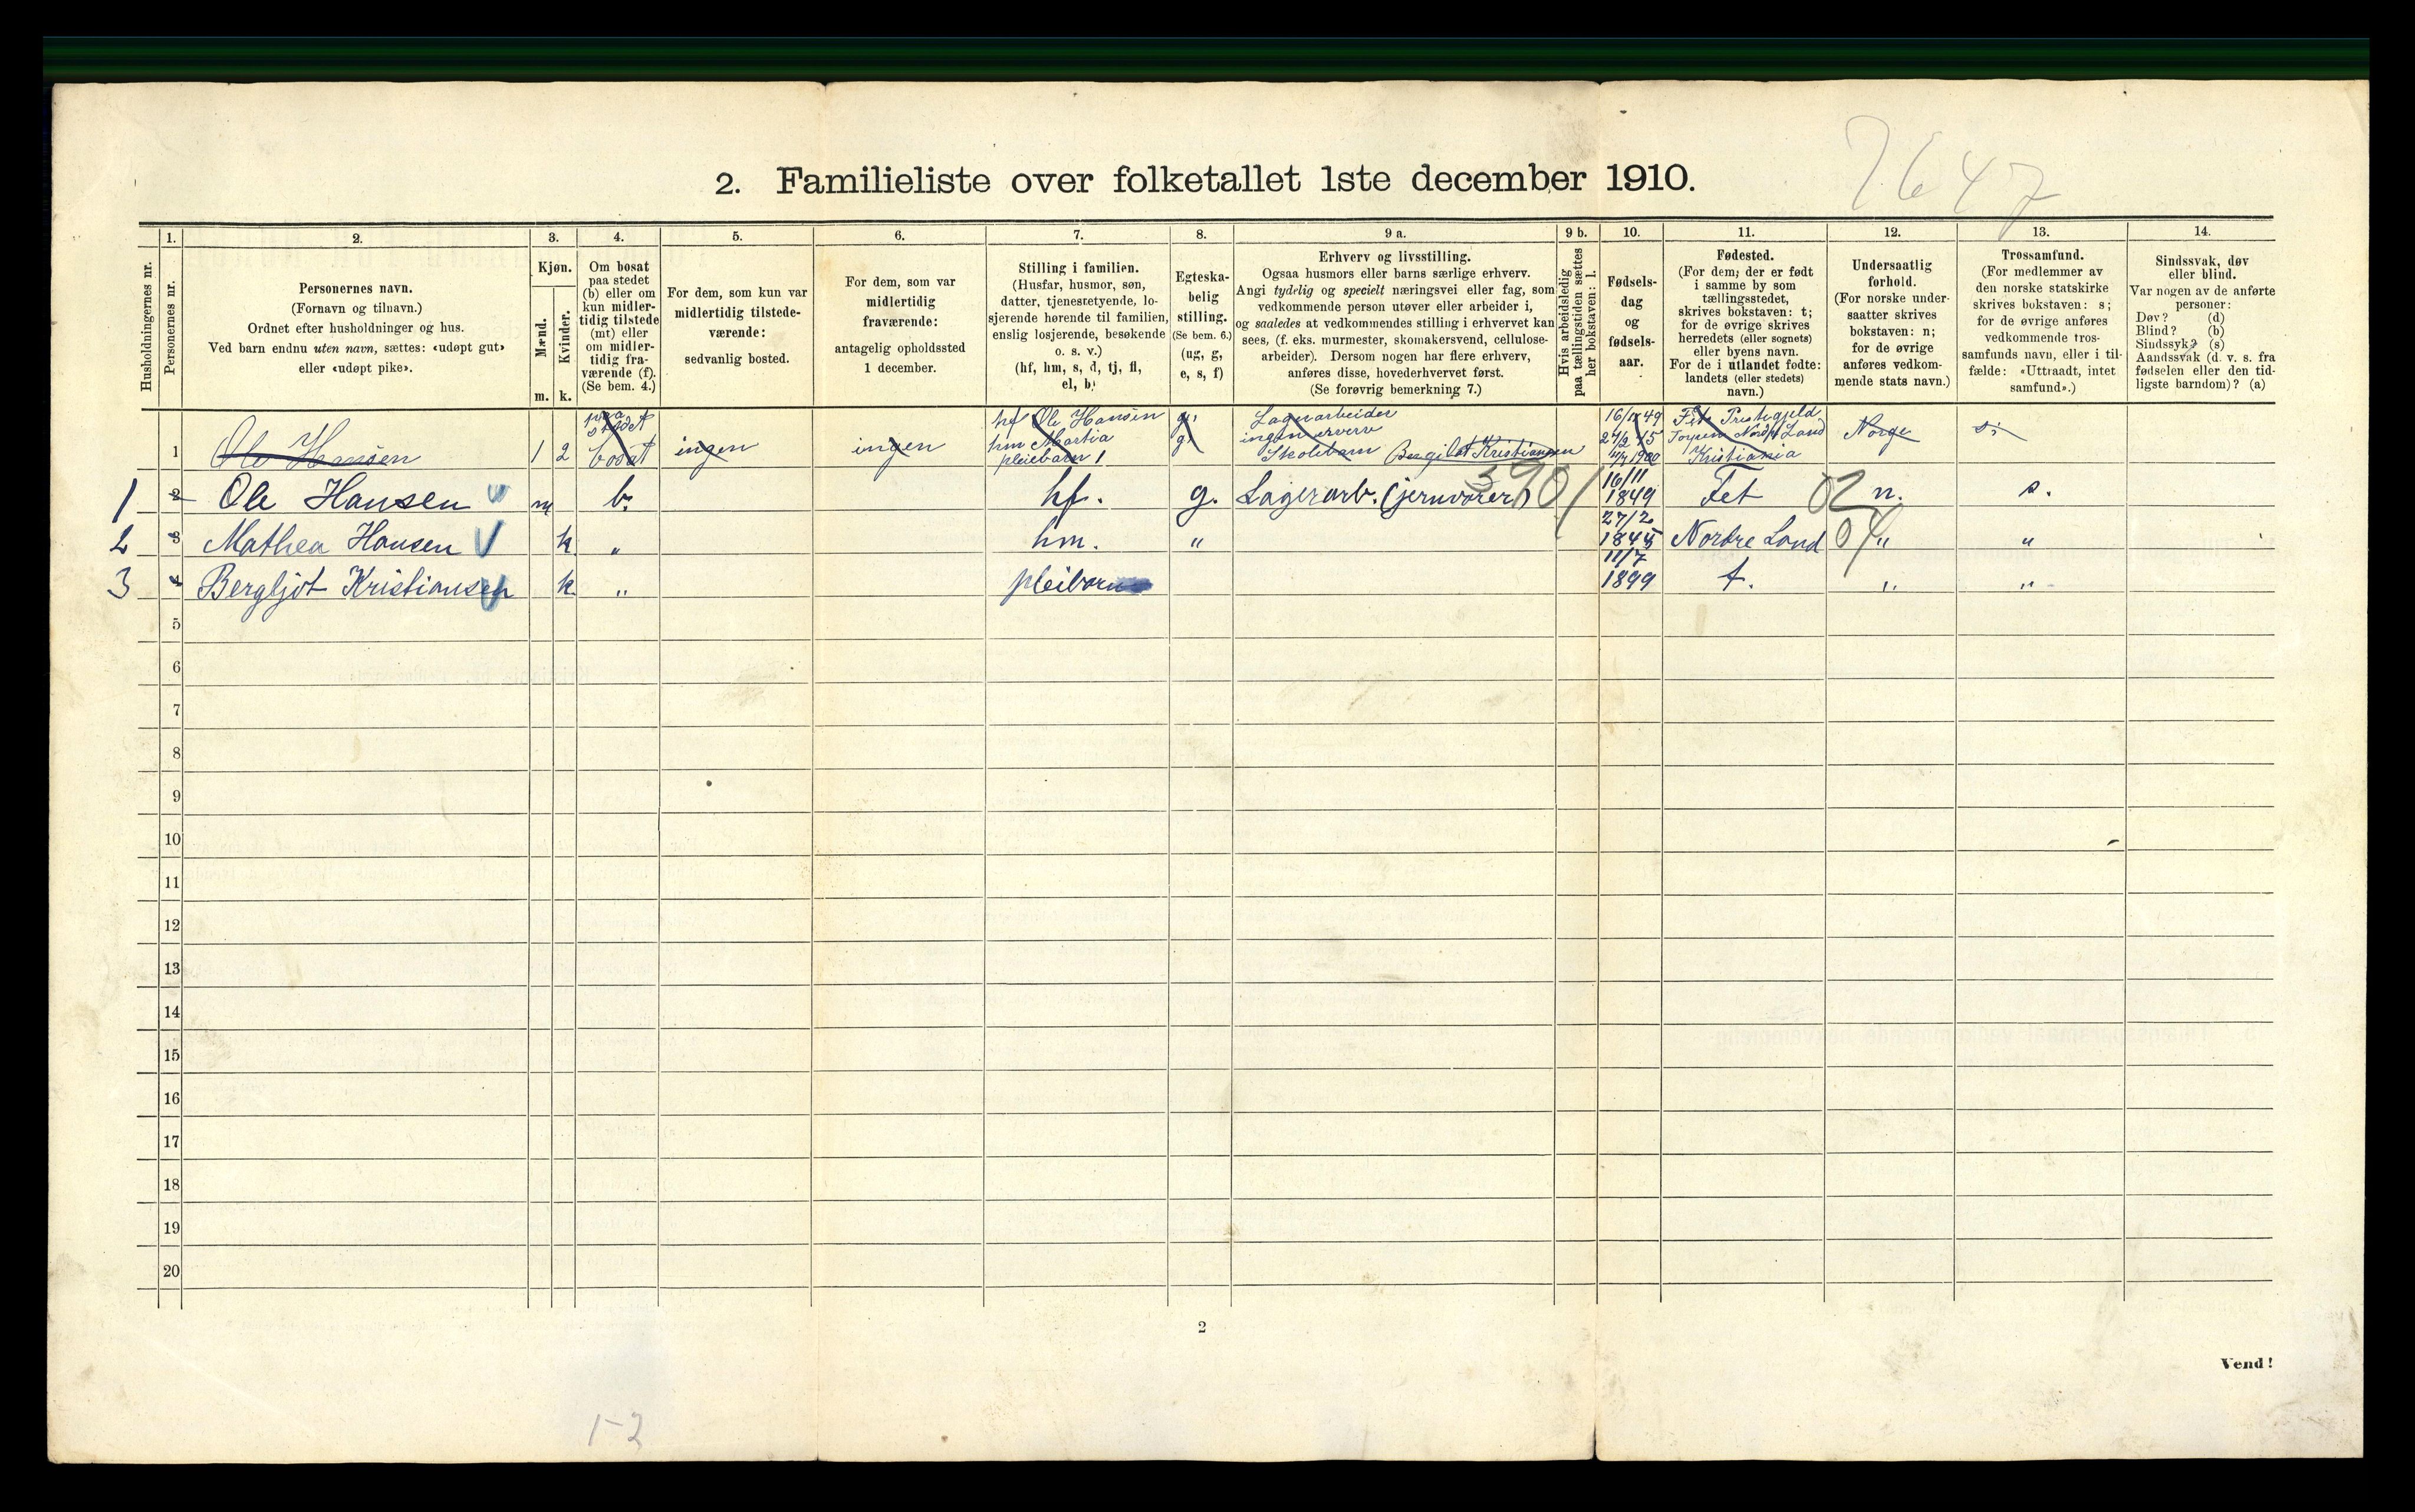 7647
2. Familieliste over folketallet 1ste december 1910.
1. 2. 3. 4. 5. 6. 7. 8. 9 a. 9 b. 10. 11. 12. 13. 14.
Husholdningernes nr.
Personernes nr.
Personernes navn.
(Fornavn og tilnavn.)
Ordnet efter husholdninger og hus.
Ved barn endnu uten navn, sættes: «udøpt gut»
eller «udøpt pike».
Kjøn.
Mænd.
Kvinder.
m. k.
Om bosat
paa stedet
(b) eller om
kun midler-
tidig tilstede
(mt) eller
om midler-
tidig fra-
værende (f).
(Se bem. 4.)
For dem, som kun var
midlertidig tilstede-
værende:
sedvanlig bosted.
For dem, som var
midlertidig
fraværende:
antagelig opholdssted
1 december.
Stilling i familien.
(Husfar, husmor, søn,
datter, tjenestetyende, lo-
sjerende hørende til familien,
enslig losjerende, besøkende
o. s. v.)
(hf, hm, s, d, tj, fl,
el, b)
Egteska-
belig
stilling.
(Se bem. 6.)
(ug, g,
e, s, f)
Erhverv og livsstilling.
Ogsaa husmors eller barns særlige erhverv.
Angi tydelig og specielt næringsvei eller fag, som
vedkommende person utøver eller arbeider i,
og saaledes at vedkommendes stilling i erhvervet kan
sees, (f. eks. murmester, skomakersvend, cellulose-
arbeider). Dersom nogen har flere erhverv,
anføres disse, hovederhvervet først.
(Se forøvrig bemerkning 7.)
Hvis arbeidsledig
paa tællingstiden sættes
her bokstaven: l.
Fødsels-
dag
og
fødsels-
aar.
Fødested.
(For dem, der er født
i samme by som
tællingsstedet,
skrives bokstaven: t;
for de øvrige skrives
herredets (eller sognets)
eller byens navn.
For de i utlandet fødte:
landets (eller stedets)
navn.)
Undersaatlig
forhold.
(For norske under-
saatter skrives
bokstaven: n;
for de øvrige
anføres vedkom-
mende stats navn.)
Trossamfund.
(For medlemmer av
den norske statskirke
skrives bokstaven: s;
for de øvrige anføres
vedkommende tros-
samfunds navn, eller i til-
fælde: «Uttraadt, intet
samfund».)
Sindssvak, døv
eller blind.
Var nogen av de anførte
personer:
Døv? (d)
Blind? (b)
Sindssyk? (s)
Aandssvak (d. v. s. fra
fødselen eller den tid-
ligste barndom)? (a)
1 Ole Hansen 1 2 paa stedet bosat ingen ingen hf Ole Hansen g. Lagerarbeider 16/11 49 Norge s
hm g. ingen erverv
pleiebarn 1 Skolebarn Kristiansen Kristiania
1 2 Ole Hansen m b. hf. g. Lagerarb. (jernvarer) 16/11 1849 Fet 02 n. s.
2 3 Mathea Hansen k " hm. " 27/2 1845 Nordre Land 04 " "
3 4 Bergljot Kristiansen k " pleibarn 11/7 1899 t. " "
5
6
7
8
9
10
11
12
13
14
15
16
17
18
19
20
2
Vend!
1-2